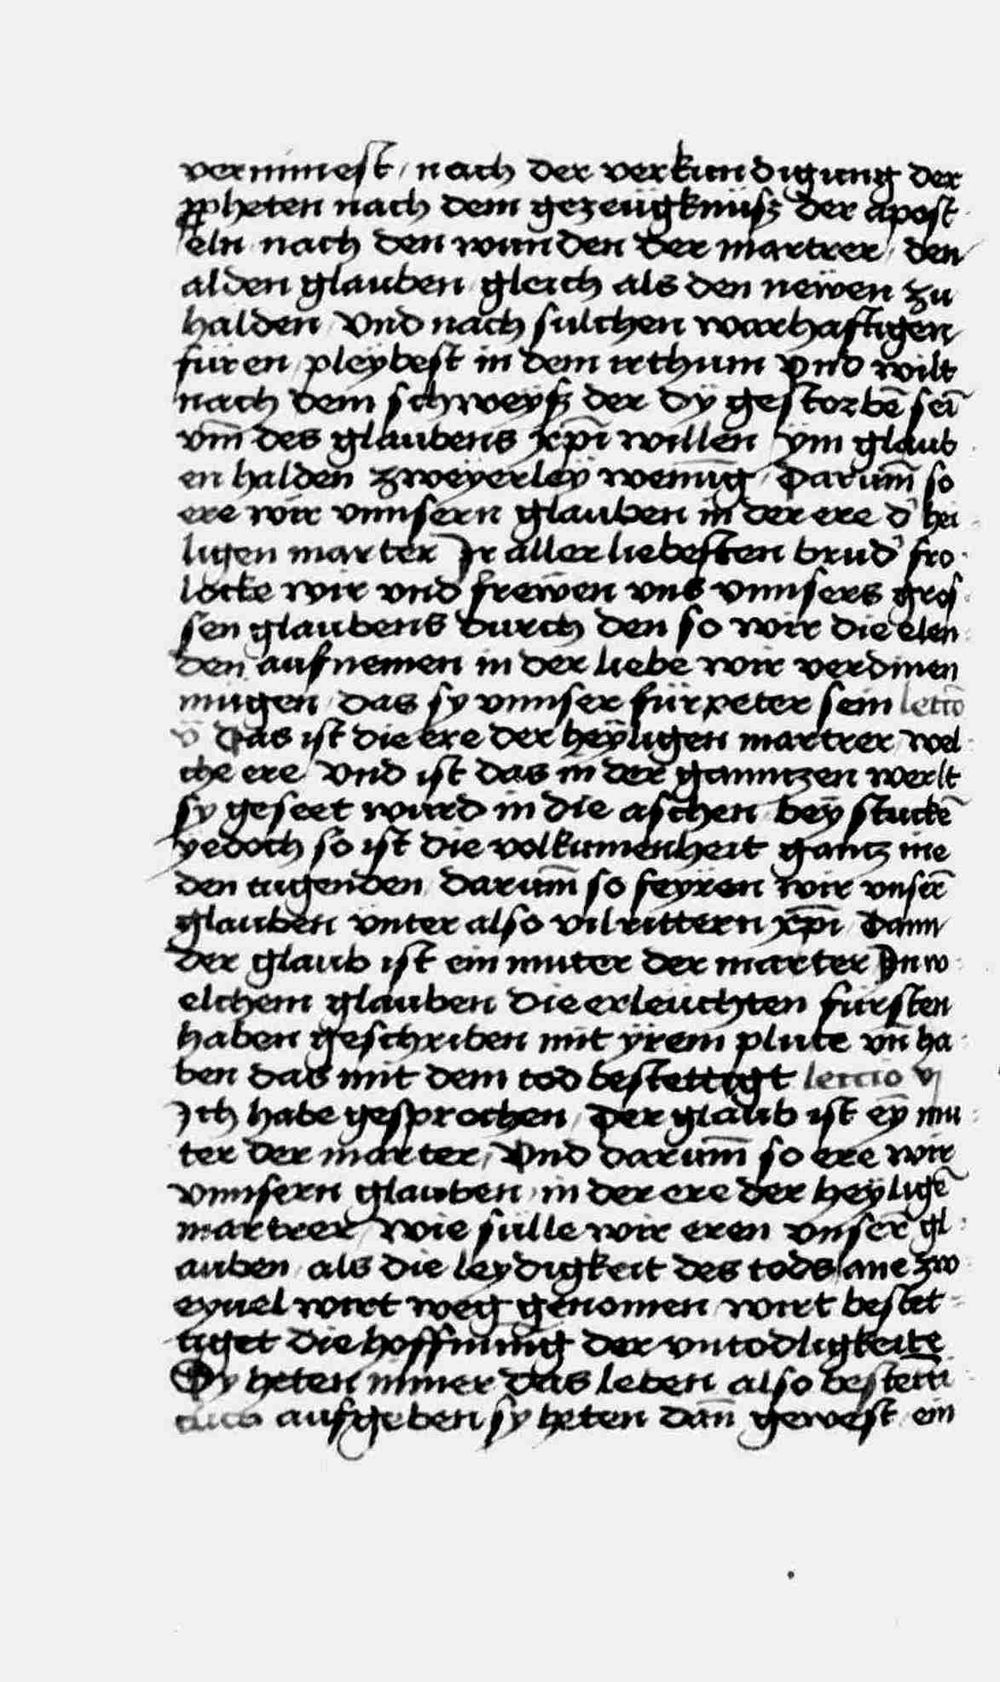 vernimest / nach der verkundigung der
ꝓpheten nach dem gezeügknüsz der apost
eln nach den wunden der martrer / den
alden glauben gleich als den newen zu
halden Vnd nach sulchen warhaftigen
füren pleÿbest in dem irthum vnd wilt
nach dem schweÿsz der dÿ gestorbē seī
vm̄ des glaubens xp̄i willen ÿm glaub
en halden zweÿerleÿ wenūg / Darum̄ so
ere wir vnnsern glauben in der ere d' hei
ligen marter Ir aller liebesten brud' fro
locke wir vnd frewen vns vnnsers gros
sen glaubens durch den so wir die elen
den aufnemen in der liebe wir verdinen
mugen das sy vnnser fürpeter sein lectō
v Das ist die ere der heÿligen martrer wel
che ere Vnd ist das in der ganntzen werlt
sy geseet wurd in die aschen beÿ stuckē
yedoch so ist die volkumenheit gantz me
den tugenden darum̄ so feyren wir vnserē
glauben vnter also vil rittern xp̄i Dann
der glaub ist ein muter der marter In w
elchem glauben die erleuchten fürsten
haben geschriben mit ÿrem plute vn̄ ha
ben das mit dem tod bestettigt leccio vj
Ich habe gesprochen / Der glaub ist eȳ mu
ter der marter / Vnd darum̄ so ere wir
vnnsern glauben in der ere der heÿligē
martrer wie sülle wir eren vnserē gl
auben als die leydigkeit des tods ane zw
eyuel wirt weg genomen wirt bestet
tiget die hoffnung der vntodligkeite
Dy heten nimer das leben also
aufgeben sy heten dan̄ gewest ein